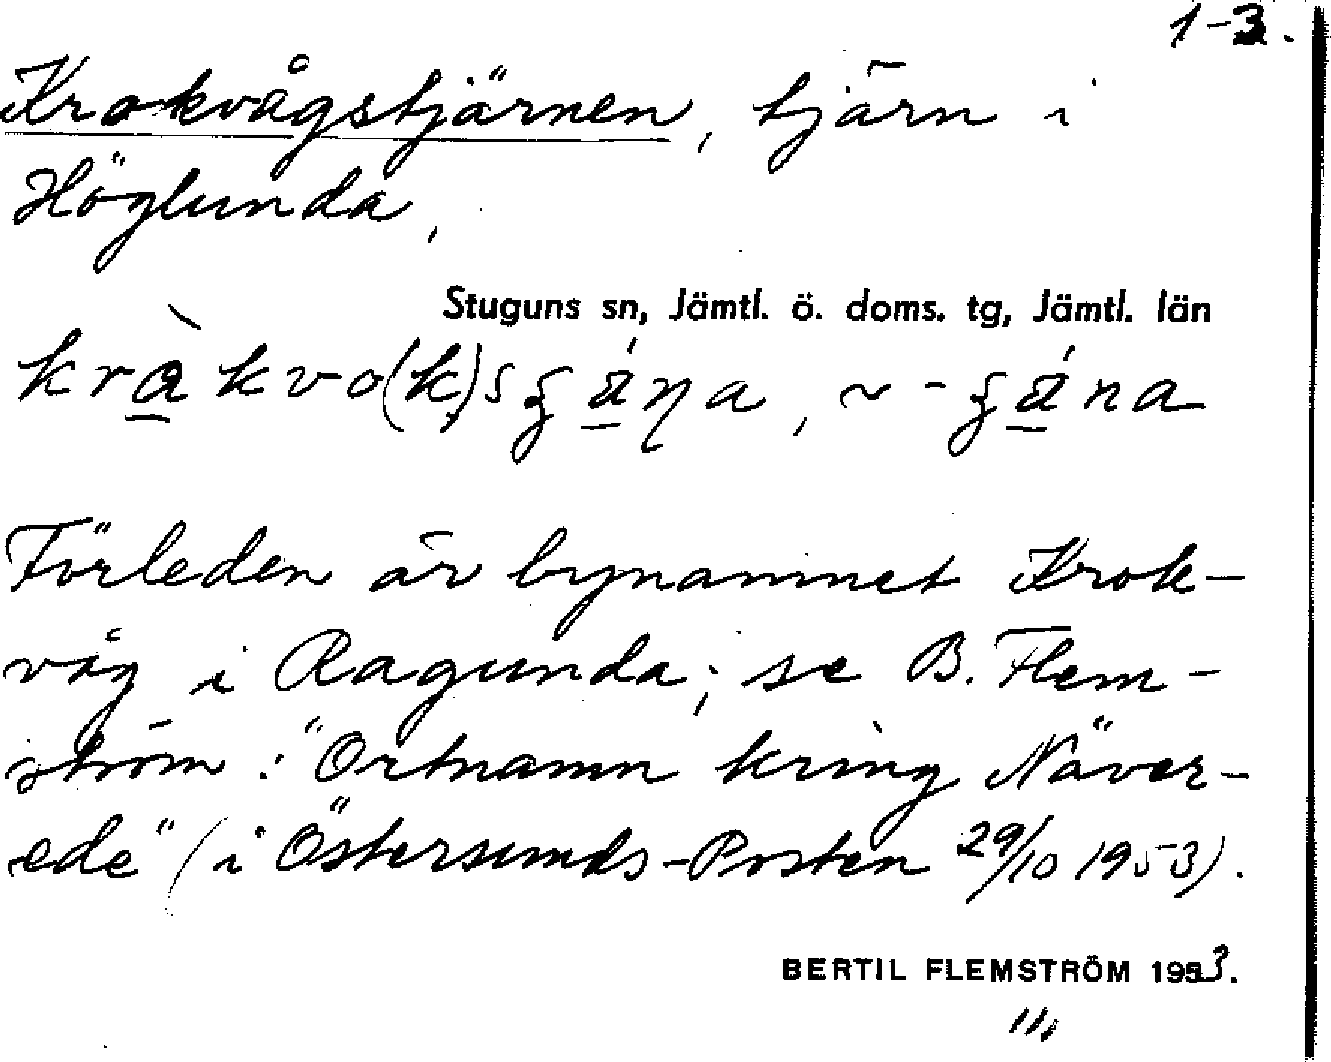 1-3.
Krokvågstjärnen, tjärn i
Höglunda,
Stuguns sn, Jämtl. ö. doms. tg, Jämtl. län
Förleden är bynamnet Krok-
våg i Ragunda; se B. Flem-
ström: "Ortnamn kring Näver-
ede" (i Östersunds-Posten 29/10 1953).
BERTIL FLEMSTRÖM 1953.